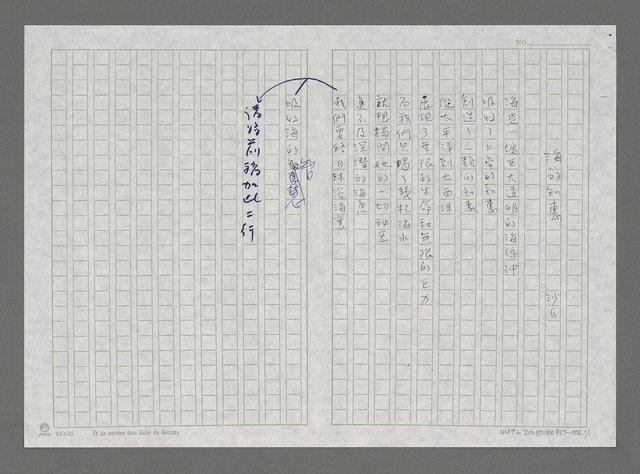 NO.
海的知惠 沙白
海是一塊巨大透明的海綿
吸收了上帝的知惠
創造了人類的知惠
從太平洋到大西洋
展現了無限的生命和無限的巨力
而我們只喝了幾杯海水
就想揭開她的一切秘密
真不及深潛的海魚
我們要終日沐浴海裏
吸收海的知
請將前稿加此二行
24×25
It is never too late to learn.